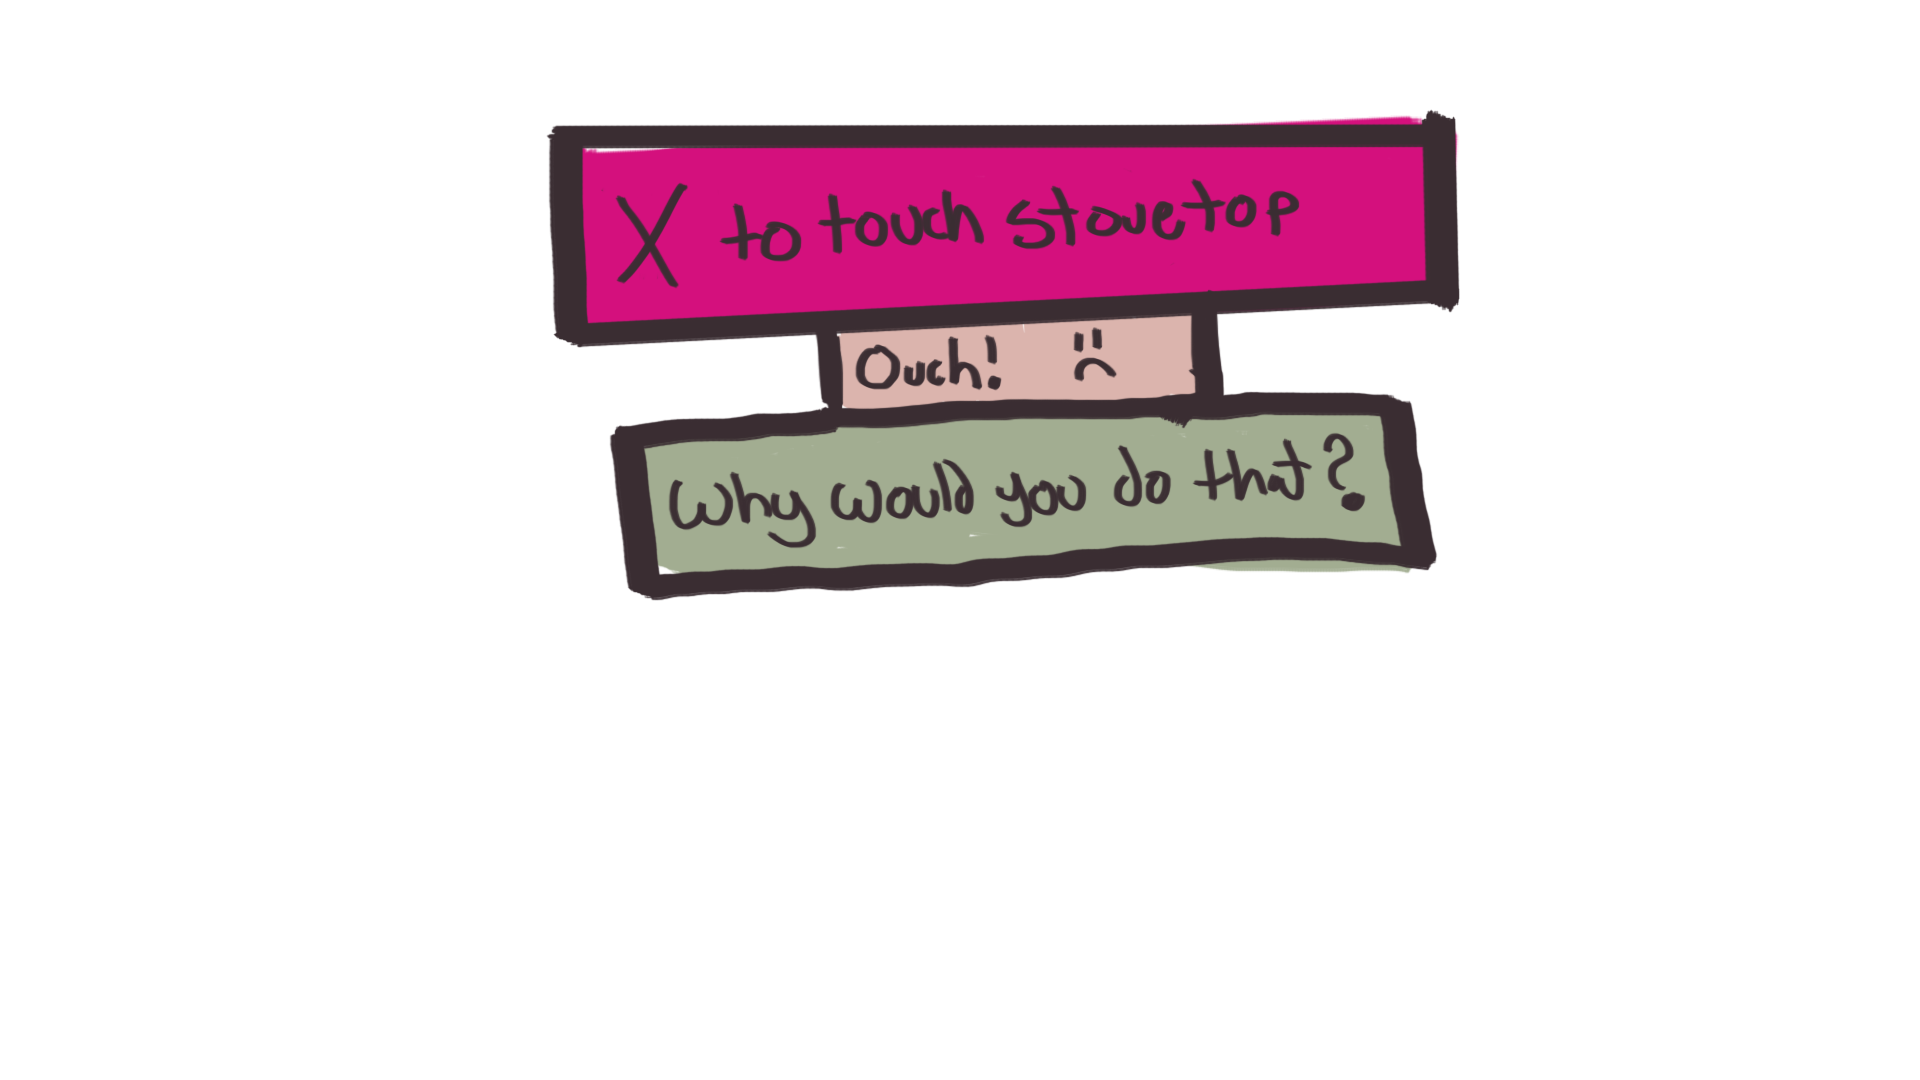 X to touch stovetop
Ouch! :(
Why would you do that?